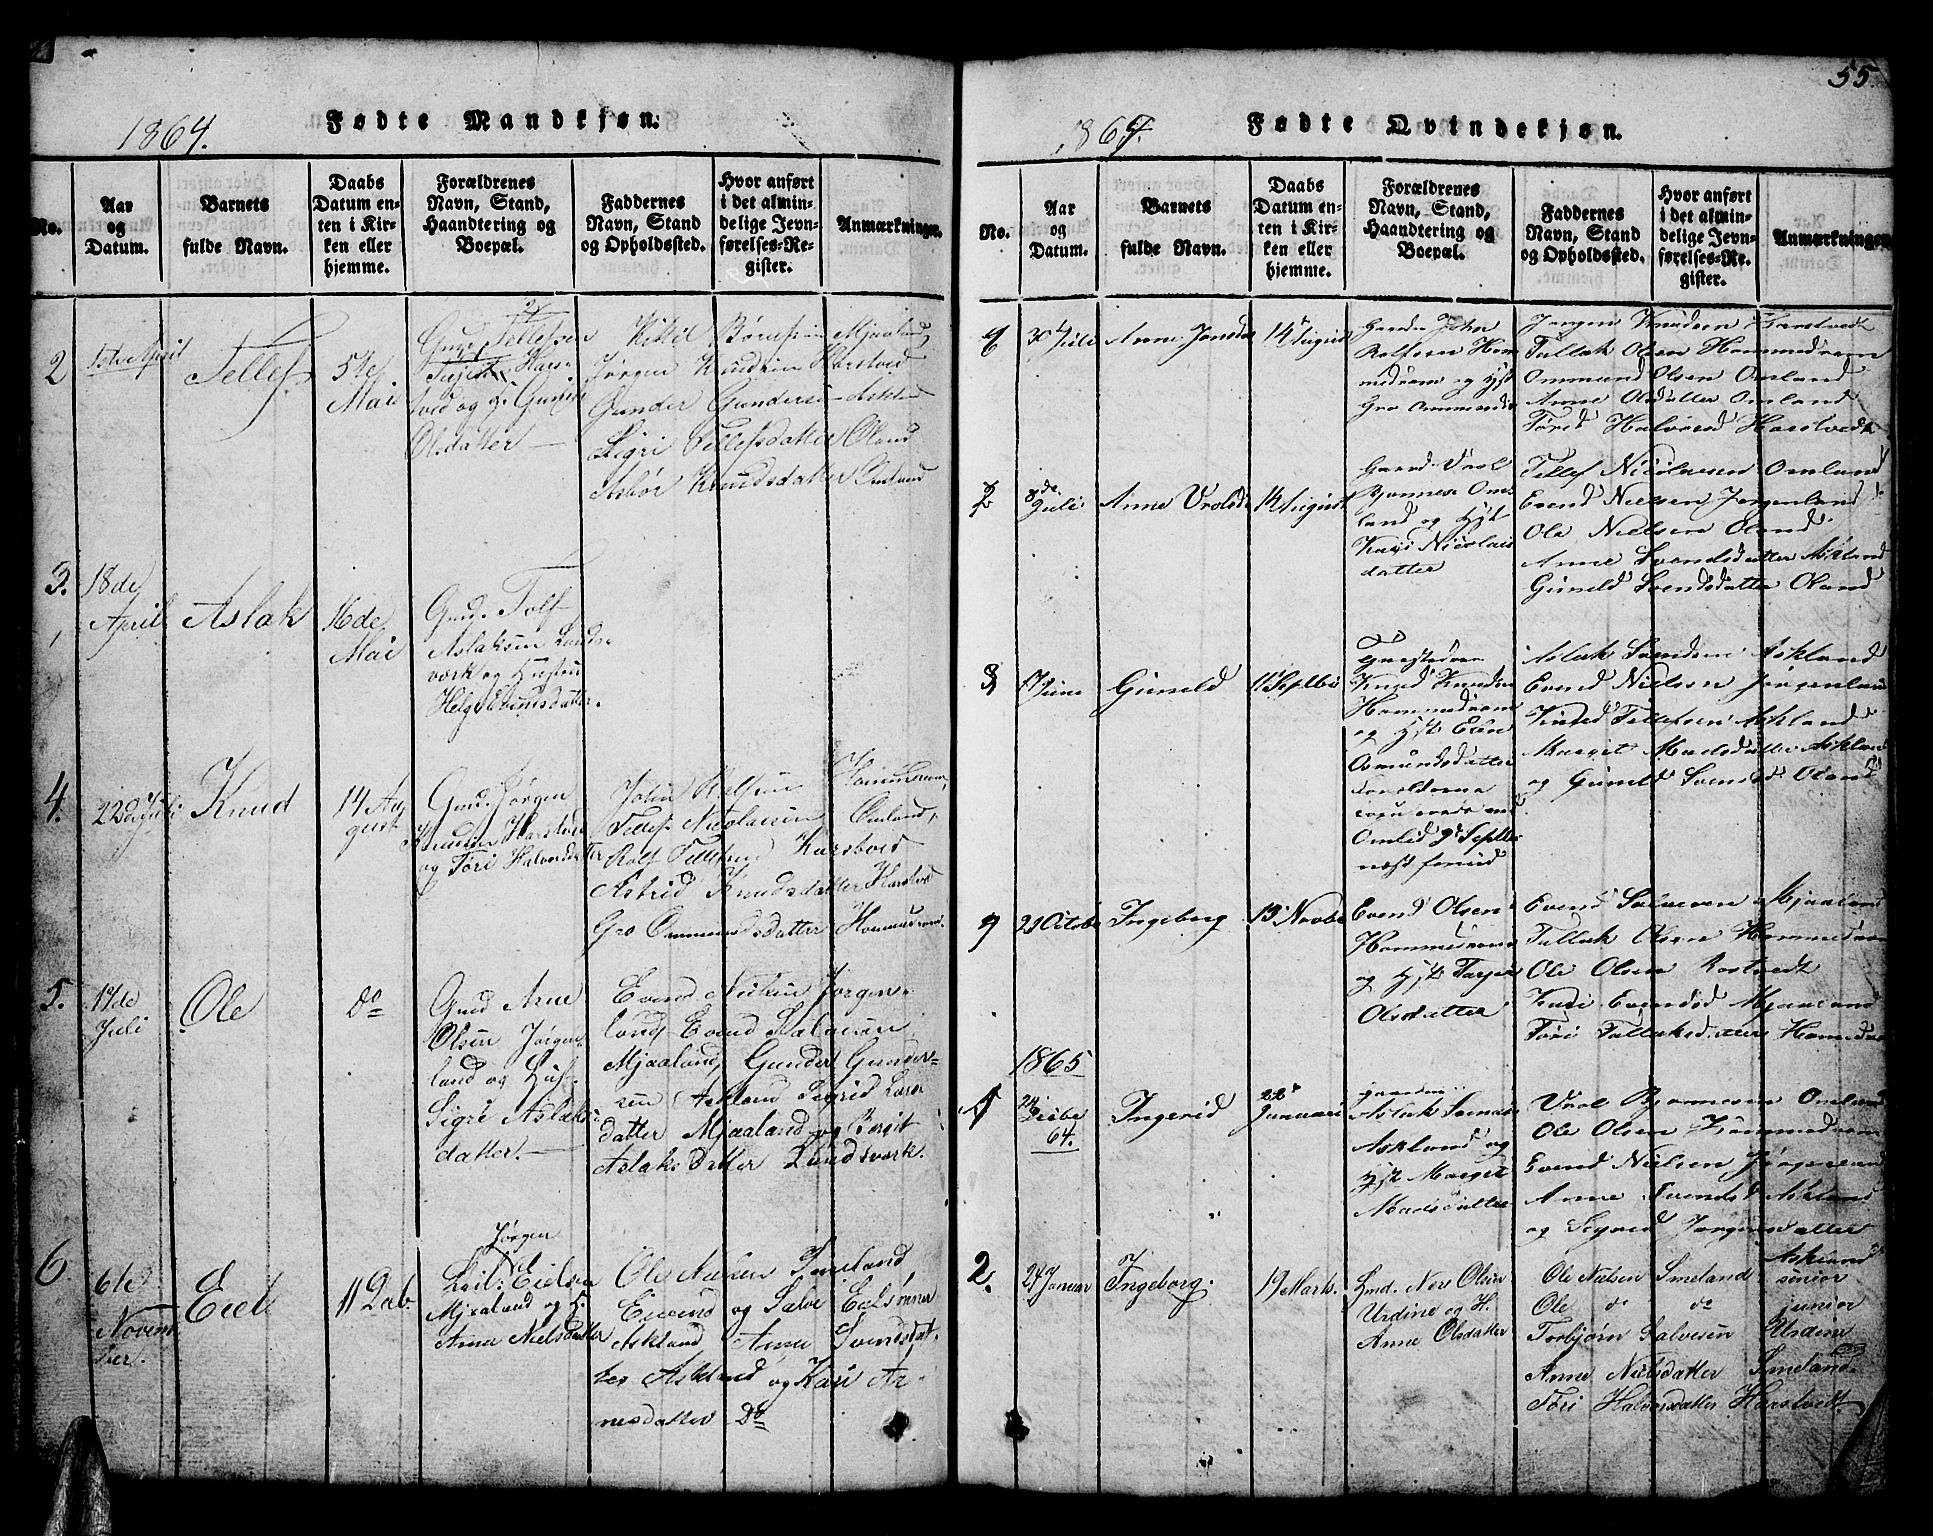 1864.
Fødte Mandkjøn.
No.
Aar
og
Datum.
Barnets
fulde Navn.
Daabs
Datum en-
ten i Kir-
ken eller
hjemme.
Forældrenes
Navn, Stand,
Haandtering og
Boepæl.
Faddernes
Navn, Stand
og Opholdssted.
Hvor anført
i det almin-
delige Jevn-
førelses-Re-
gister.
Anmærkninger.
2
1ste April
Tellef
5te
Mai
Gmd. Tellefsen
Hars-
tved og H.
Olsdatter
Jørgen Knudsen Harstved
Gunder Gundersen Askland
Sigri Tellefsdatter Oland
Asbør Knudsdatter Omland
3.
18de
April
Aslak
16de
Mai
Gmd. Tolf
Aslaksen Lands-
værk og Hustru
Helge
4.
22de Juli
Knud
14 Au
gust
Gmd. Jørgen
Knudsen Harstved
og Tøri Halvorsdatter
John Rolfsen
Tellef Nicolaisen Omland,
Rolf Tellefsen Harstved
Astrid Knudsdatter Harstved
Gro Ommundsdatter Hommedram
5.
17de
Juli
Ole
do
Gmd Arne
Olsen Jørgen-
land og Hus.
Sigri Aslaks-
datter.
Evend Nielsen Jørgen-
land, Evend Salvesen
Mjaaland, Gunder Gunder-
sen Askland Sigrid Lars-
datter Mjaaland og Bergit
Aslaksdatter Landsværk.
6
6te
Novem
ber.
Eiel
11 Deb.
Jørgen
Leil: Eielsen
Mjaaland og H.
Anne Nielsdatter
Ole Nielsen Smeland,
Eivend og Salve Eielsønner
Askland Anne Svendsdat-
ter Askland og Kari Ar-
nesdatter Do
55.
1864.
Fødte Qvindekjøn.
No.
Aar
og
Datum.
Barnets
fulde Navn.
Daabs
Datum en-
ten i Kir-
ken eller
hjemme.
Forældrenes
Navn, Stand,
Haandtering og
Boepæl.
Faddernes
Navn, Stand
og Opholdssted.
Hvor anført
i det almin-
delige Jevn-
førelses-Re-
gister.
Anmærkninger
Juli
Anne Jonsd
14 August
Gaardm John
Rolfsen Hom
medram og Hst
Gro Ommunds
Jørgen Knudsen Harstvedt
Tallak Olsen Hommedram
Ommund Olsen Omland
Anne Olsdatter Omland
Tørid Halvorsd Harstvedt
2
8de
Juli
Anne Vrolsd
14 August
Gaard Vrol
Bjornsen Om-
land og Hst
Kari Nicolais
datter
Tellef Nicolaisen Omland
Evend Nielsen Jørgenland
Ole Nielsen Oland
Anne Svendsdatter Askland
Guneld Svendsdatter Oland
3
17 Juni
Guneld
11 Septbr
Knud Knudsen
Hommedram
og Hst Elen
Osmundsdatter
Forældrene
Omlid 9d Septbr
næst forud
Aslak Svendsen Askland
Evend Nielsen Jørgenland
Knud Tellefsen Askland
Margit Madsdatter Askland
og Guneld Svendsd Oland
21 Octobr
Ingeborg
13 Novbr
Evend Olsen
Hommedram
og Hst Tarjer
Olsdatter
Evend Salvesen Mjaaland
Tallak Olsen Hommedram
Ole Olsen Rostvedt
Kari Evendsd Mjaaland
Tøri Tallaksdatter Hommedram
1865
1
24
Decbr
64.
Ingerid
22
Januari
Gaardm
Aslak
Askland og
Hst Margit
Madsdatter
Vrol Bjornsen Omland
Ole Olsen Hommedram
Evend Nielsen Jørgenland
Anne Svendsd Askland
og Sigrid Jorgensdatter
Askland
2.
27
Januar
Ingeborg.
19 Marts.
Gmd. Ners Olsen
Urdine og H.
Anne Olsdatter
Ole Nielsen Smeland senior
Ole do do junior
Torbjørn Salvesen Urdine
Anne Nielsdatter Smeland
Tøri Halvorsdatter Harstvedt